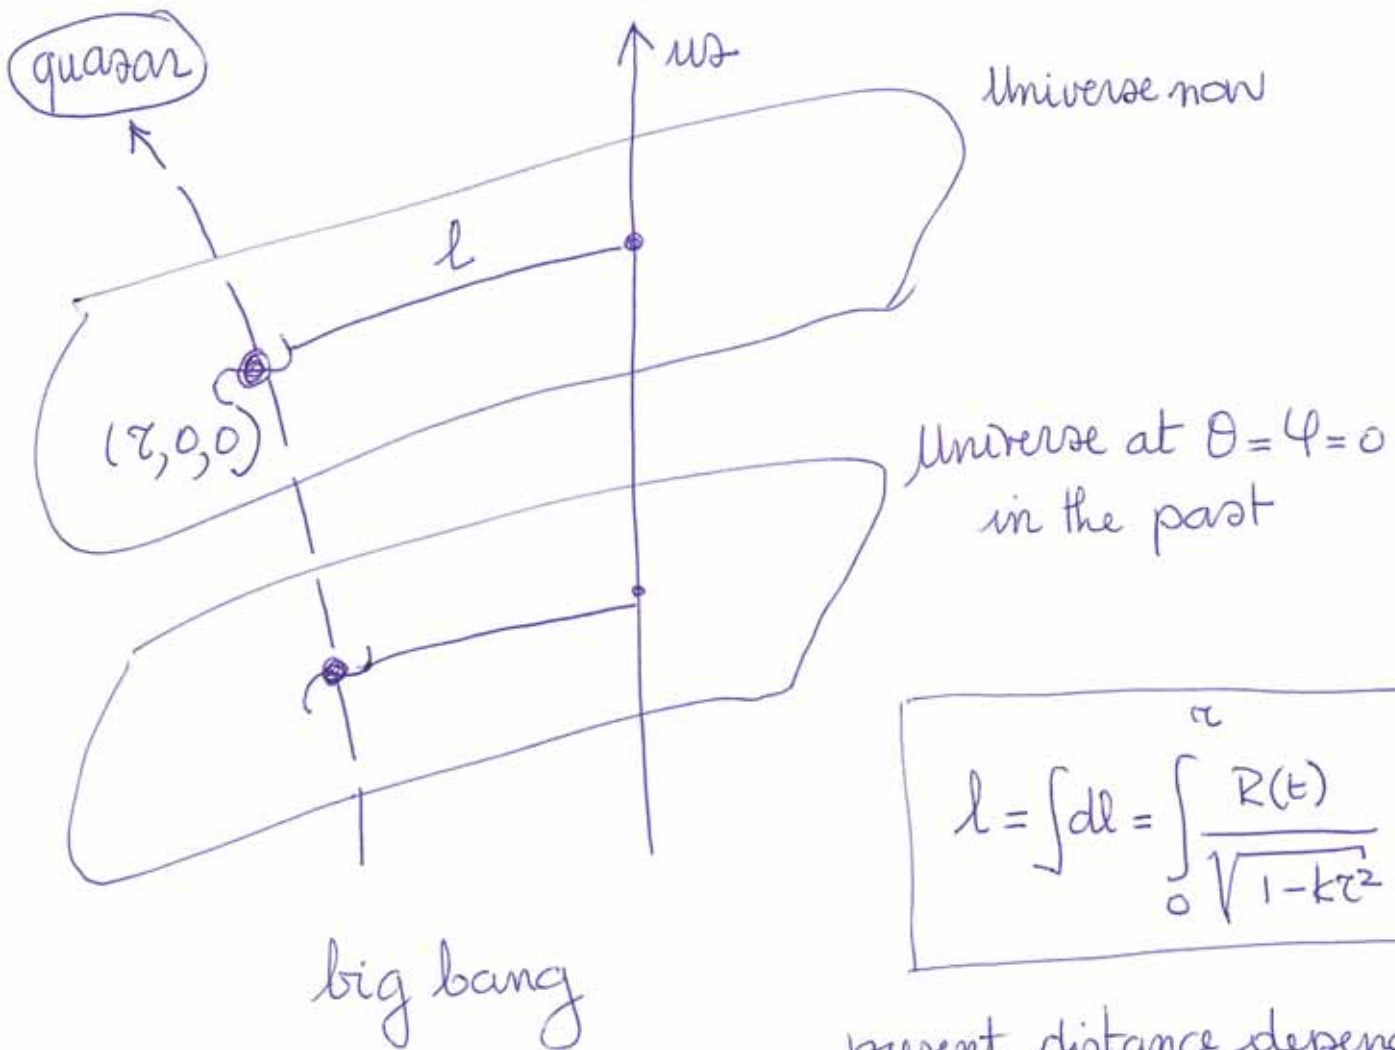 quasar
us
Universe now
l
(r,0,0)
Universe at θ=φ=0
in the past
l = ∫dl = ∫₀ʳ R(t)/√(1-kr²)
big bang
present distance depen